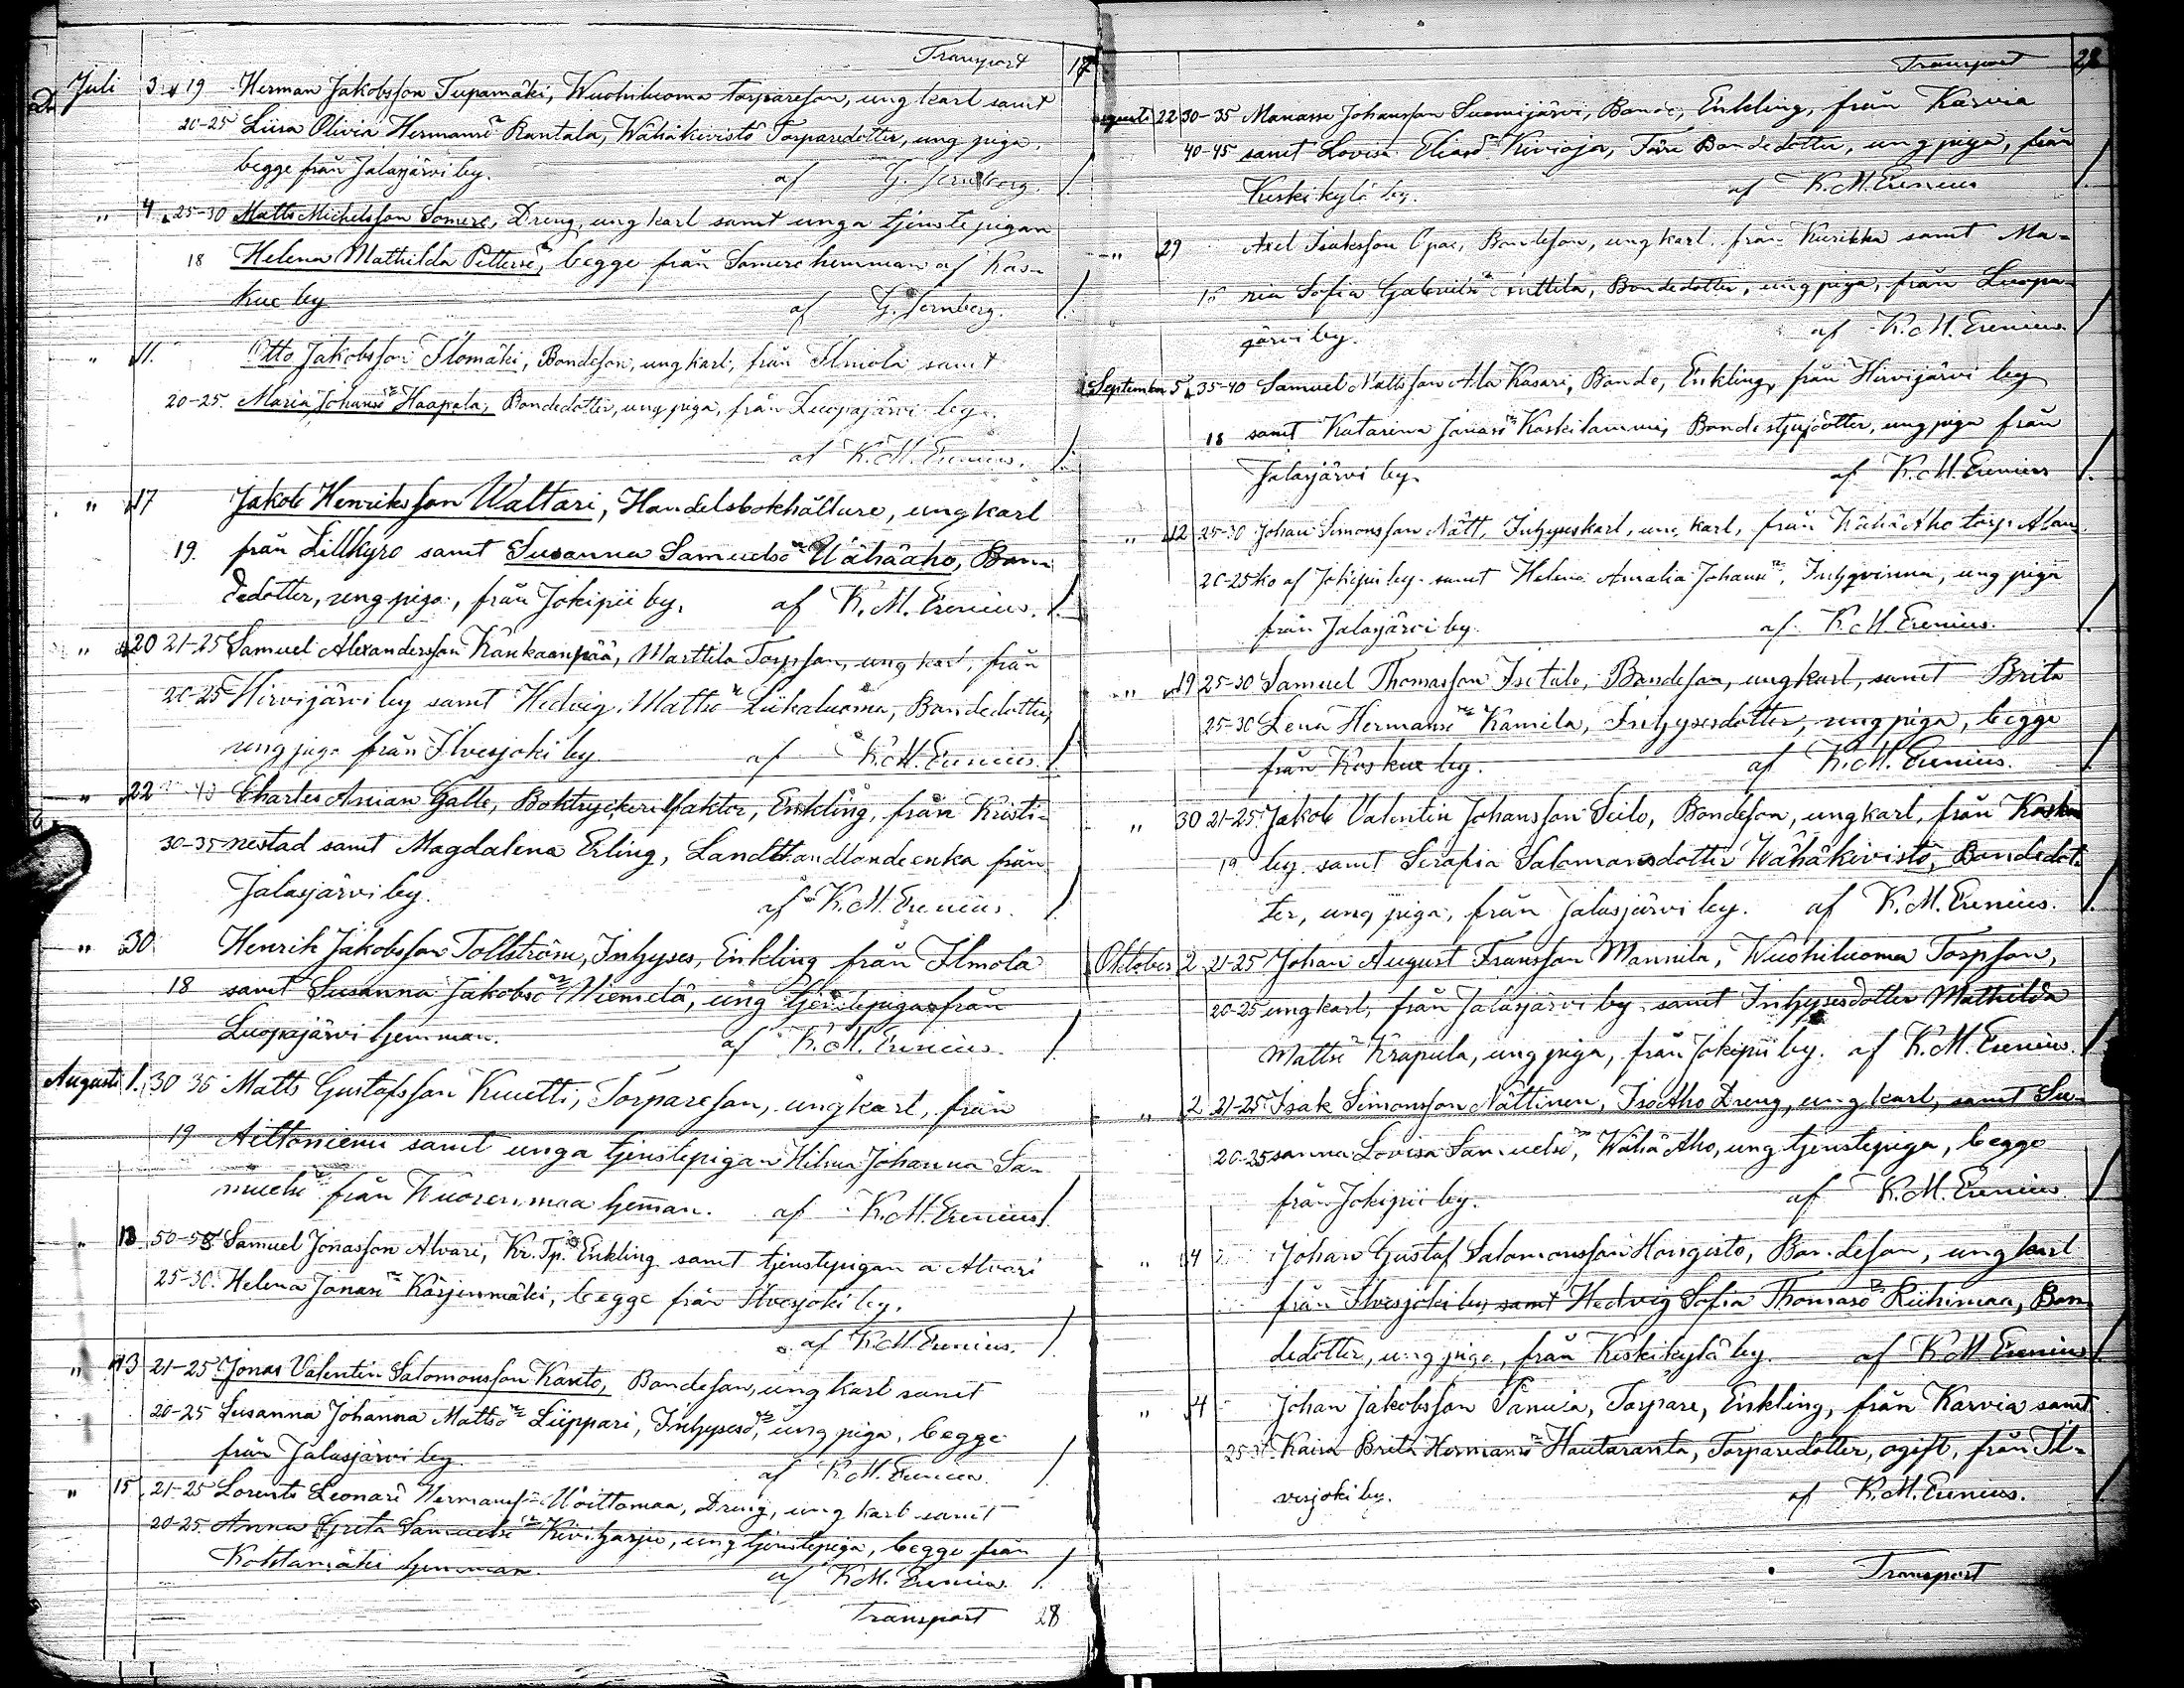 Transport 17
Juli 3 19 Herman Jakobsson Tupamäki, Wuohiluoma torpareson, ung karl samt
20-25 Liisa Olivia Hermansdr Rantala, Wähäkivistö Torparedotter, ung piga,
begge från Jalasjärvi by. af G. Jernberg. 1.
" 4 25-30 Matts Michelsson Somero, Dreng, ung karl samt unga tjenstepigan
18 Helena Mathilda Pettersdr, begge från Somero hemman af Kos-
kue by af G. Jernberg. 1.
" 11. Otto Jakobsson Ilomäki, Bondeson, ung karl, från Ilmola samt
20-25. Maria Johansdr Haapala, Bondedotter, ung piga, från Luopajärvi by.
af K. M. Erenius. 1.
" 17 Jakob Henriksson Waltari, Handelsbokhållare, ung karl
19. från Lillkyro samt Susanna Samuelsdr Wähäaho, Bon-
dedotter, ung piga, från Jokipii by. af K. M. Erenius. 1.
" 20 21-25 Samuel Alexandersson Kankaanpää, Marttila Torpson, ung karl, från
20-25 Hirvijärvi by samt Hedvig Mattsdr Liikaluoma, Bondedotter,
ung piga från Ilvesjoki by af K. M. Erenius. 1.
" 22 Charles Galle, Boktryckeri faktor, Enkling, från Kristi-
30-35 nestad samt Magdalena Erling, Landthandlande enka från
Jalasjärvi by. af K. M. Erenius. 1
" 30. Henrik Jakobsson Tollström, Inhyses, Enkling från Ilmola
18 samt Susanna Jakobsdr Niemelä, ung tjenstepiga från
Luopajärvi hemman. af K. M. Erenius. 1
Augusti 1. 30 35 Matts Gustafsson Kuutti, Torpareson, ung karl, från
19 Aittoniemi samt unga tjenstepigan Hilma Johanna Sa-
muelsdr från Wuorenmaa hemman. af K. M. Erenius 1.
" 13 50-55 Samuel Jonasson Alvari, Kr. Tp. Enkling samt tjenstepigan a Alvari
25-30. Helena Jonasdr Karjenmäki, begge från Ilvesjoki by.
af K. M. Erenius. 1.
" 13 21-25 Jonas Valentin Salomonsson Kauto, Bondeson, ung karl samt
20-25 Susanna Johanna Mattsdr Lüppari, Inhysesdr, ung piga, begge
från Jalasjärvi by. af K. M. Erenius. 1.
" 15 21-25 Lorents Leonard Hermansson Woittomaa, Dreng, ung karl samt
20-25. Anna Greta Samuelsdr Kiviharju, ung tjenstepiga, begge från
Kohtamäki hemman. af K. M. Erenius. 1.
Transport 28
Transport 28
Augusti 22 30-35 Manasse Johansson Suomijärvi, Bonde, Enkling, från Karvia
40-45 samt Lovisa Eliasdr Kivioja, Bondedotter, ung piga, från
Keskikylä by. af K. M. Erenius 1.
" 29 Axel Isaksson Opas, Bondeson, ung karl, från Kurikka samt Ma-
ria Sofia Gabrielsdr Anttila, Bondedotter, ung piga, från Luopa-
järvi by. af K. M. Erenius 1
September 5 35-40 Samuel Mattsson Ala Kasari, Bonde, Enkling, från Hirvijärvi by
18 samt Katarina Jonasdr Koskilammi, Bonde styfdotter, ung piga från
Jalasjärvi by. af K. M. Erenius 1.
" 12 25-30 Johan Simonsson Nätt, Inhyseskarl, ung karl, från Wähä Aho torp Alan-
20-25 ko af Jokipii by samt Helena Amalia Johansdr, Inhyqvinna, ung piga
från Jalasjärvi by. af K. M. Erenius. 1.
" 19 25-30 Samuel Thomasson Isotalo, Bondeson, ung karl, samt Brita
25-30 Lena Hermansdr Kamila, Inhysesdotter, ung piga, begge
från Koskue by. af K. M. Erenius. 1
" 30 21-25 Jakob Valentin Johansson Seilo, Bondeson, ung karl, från Koskue
19 by samt Serafia Salomonsdotter Wähäkivistö, Bondedot-
ter, ung piga, från Jalasjärvi by. af K. M. Erenius. 1.
Oktober 2 21-25 Johan August Fransson Mannila, Wuohiluoma Torpson,
20-25 ung karl, från Jalasjärvi by samt Inhysesdotter Mathilda
Mattsdr Krapula, ung piga, från Jokipii by. af K. M. Erenius. 1
" 2 21-25 Isak Simonsson Nättinen, IsoAho Dreng, ung karl, samt Su-
20-25 sanna Lovisa Samuelsdr, Wähä Aho, ung tjenstepiga, begge
från Jokipii by. af K. M. Erenius 1
" 4 Johan Gustaf Salomonsson Hongisto, Bondeson, ung karl
från Ilvesjoki by samt Hedvig Sofia Thomasdr Riihimaa, Bon-
dedotter, ung piga, från Keskikylä by. af K. M. Erenius 1.
" 4 Johan Jakobsson Panula, Torpare, Enkling, från Karvia samt
25-30 Kaisa Brita Hermansdr Hautaranta, Torparedotter, ogift, från Il-
vesjoki by. af K. M. Erenius. 1
Transport